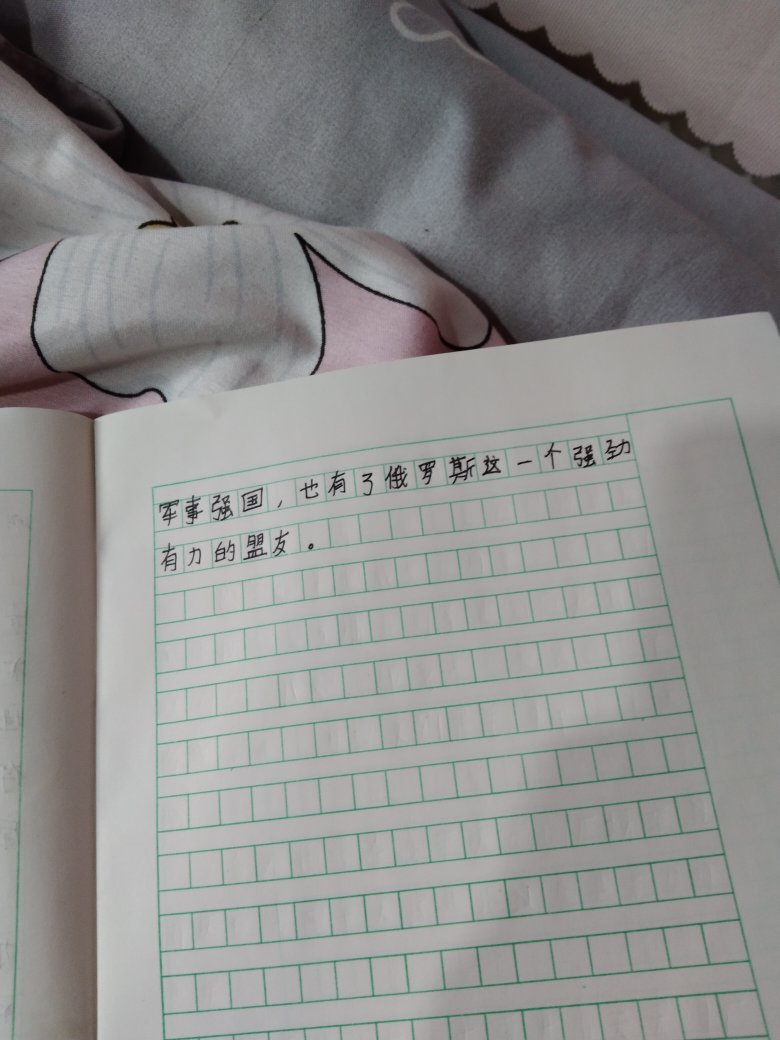 军事强国，也有了俄罗斯这一个强劲
有力的盟友。